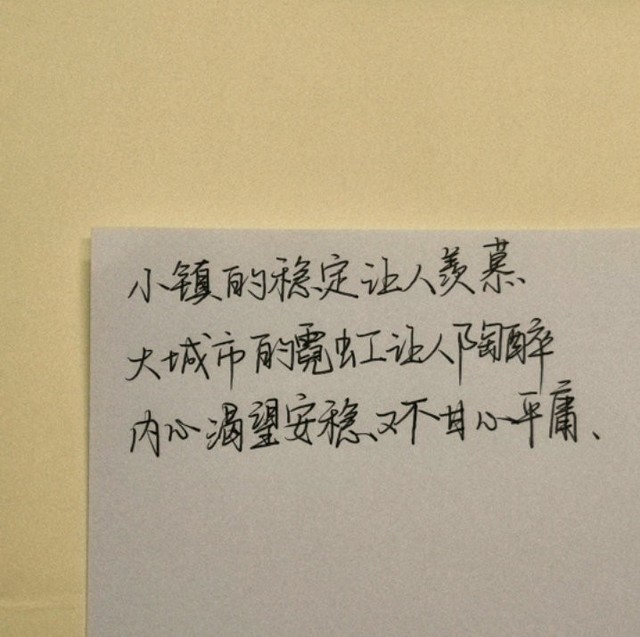 小镇的稳定让人羡慕
大城市的霓虹让人陶醉
内心渴望安稳、又不甘心平庸、